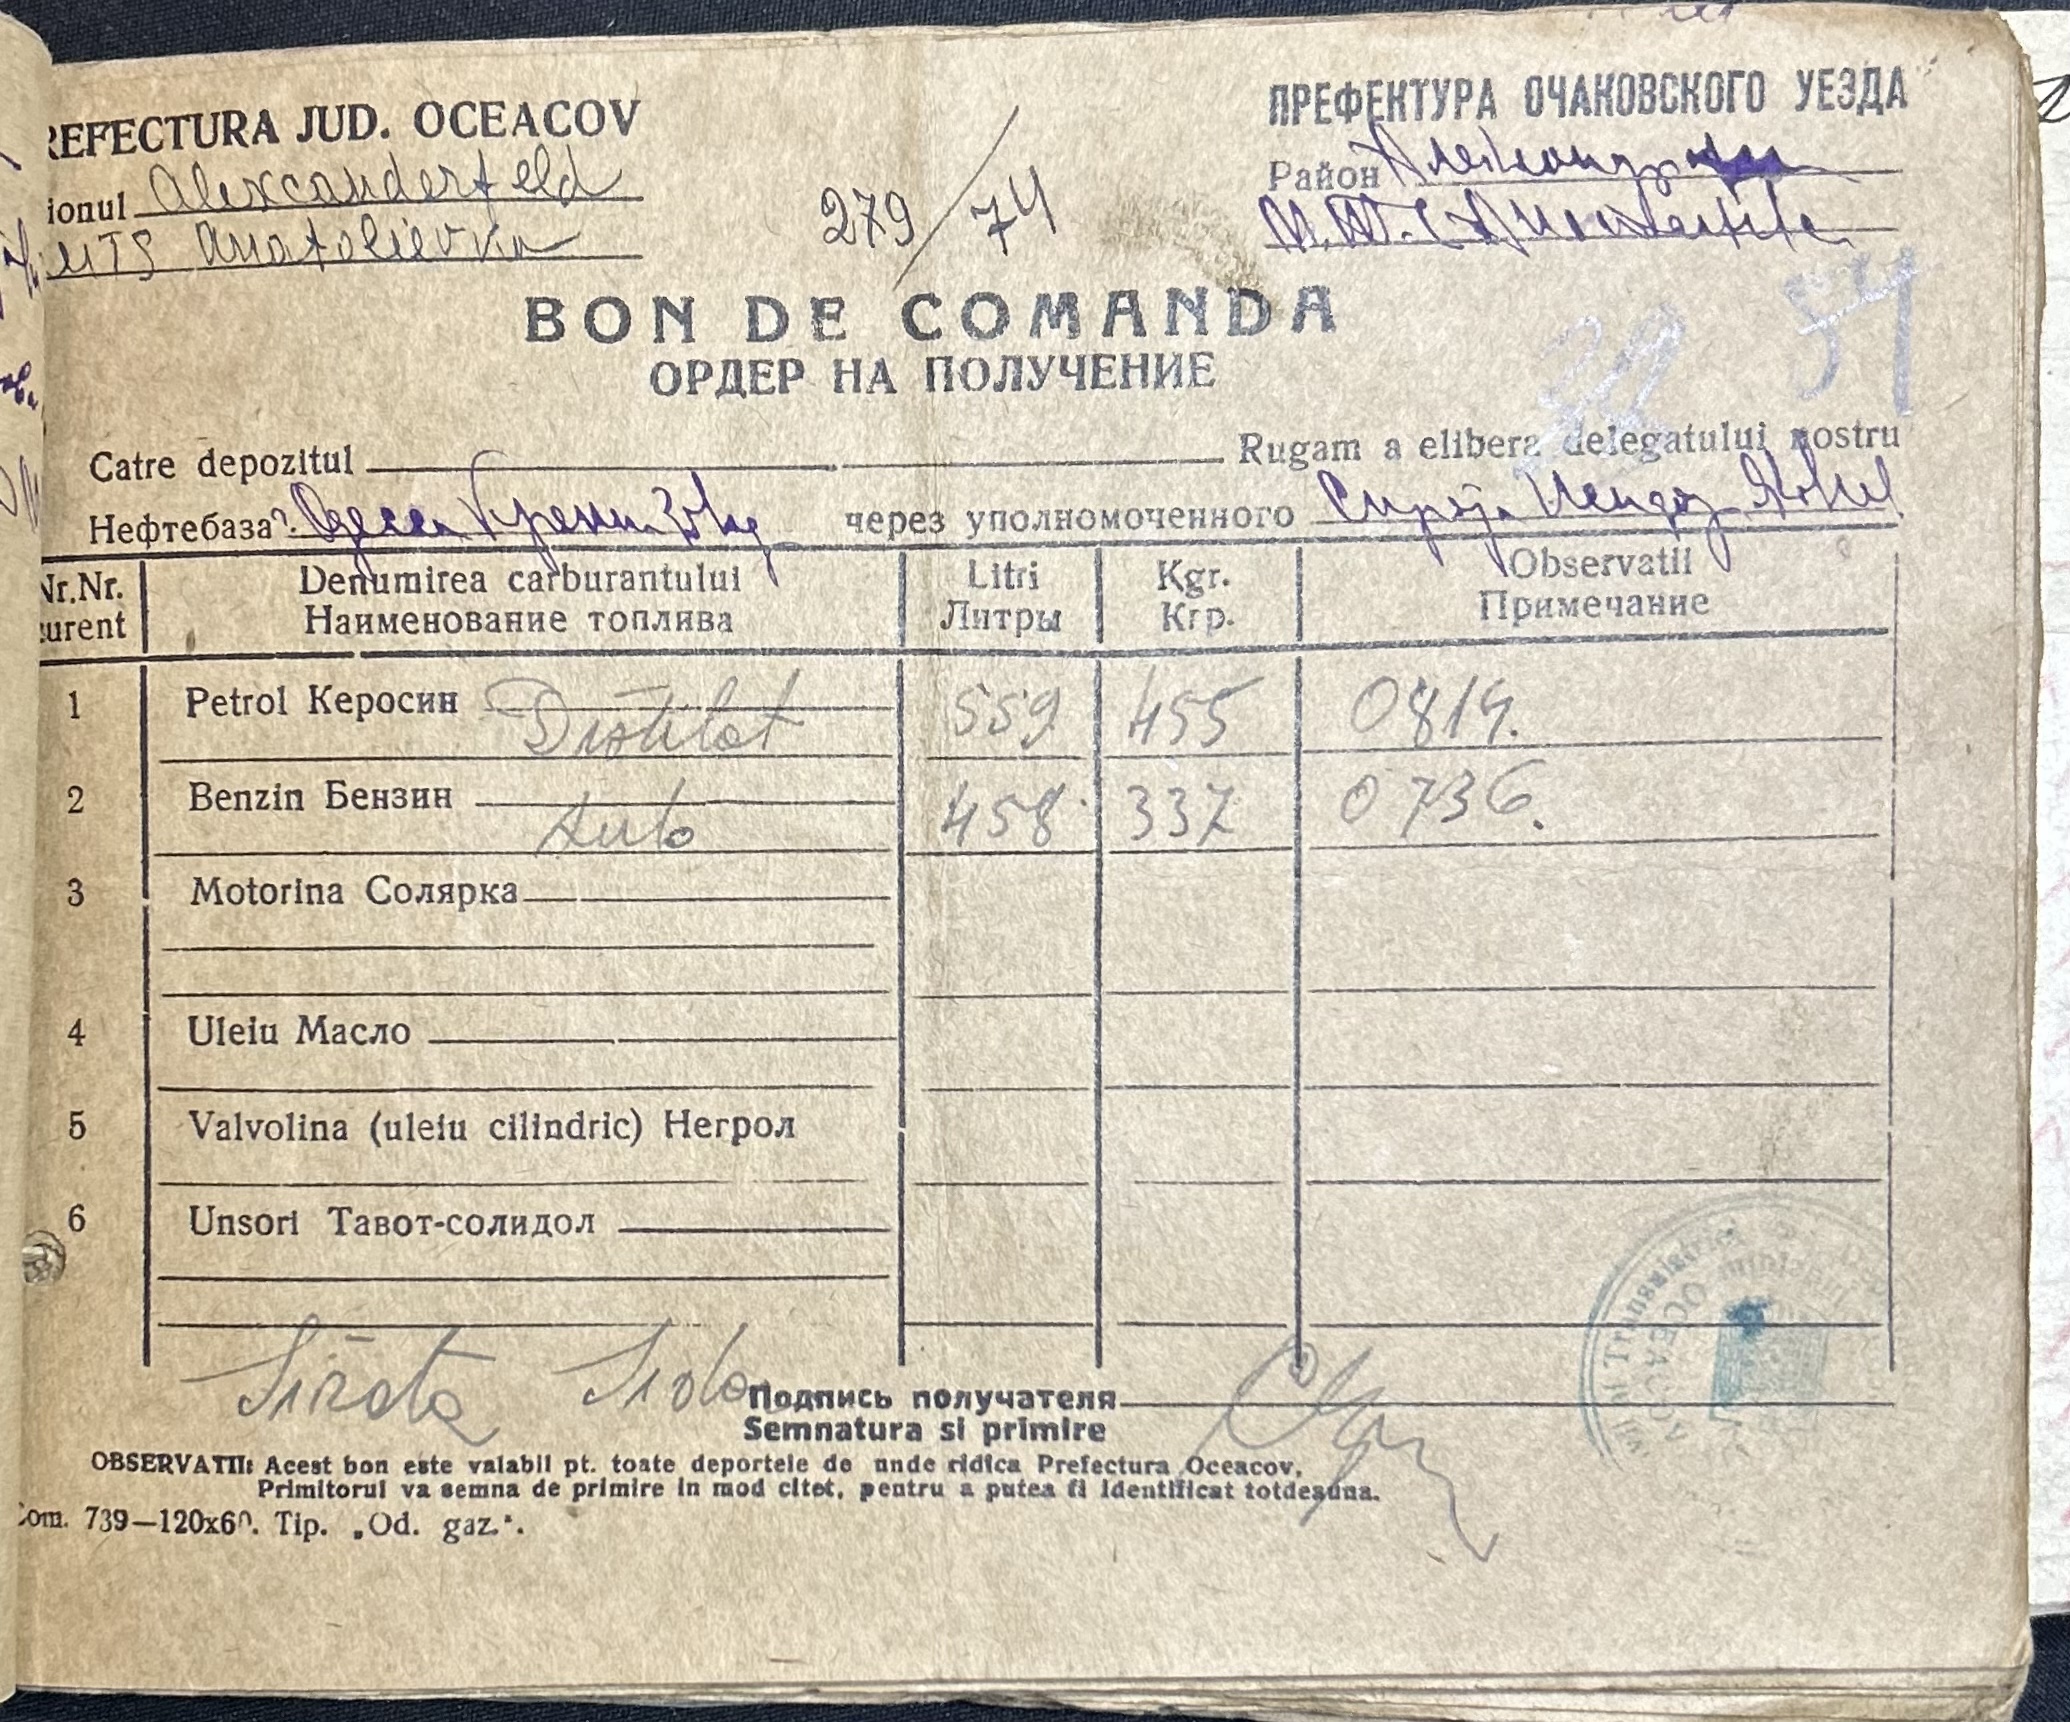 REFECTURA JUD. OCEACOV
ПРЕФЕКТУРА ОЧАКОВСКОГО УЕЗДА
ionul Alexcanderfeld
279/74
Район
MTS Anatolievka
54
BON DE COMANDA
ОРДЕР НА ПОЛУЧЕНИЕ
Catre depozitul Rugam a elibera delegatului nostru
Нефтебаза через уполномоченного
Nr.Nr. Denumirea carburantului Litri Kgr. Observatii
curent Наименование топлива Литры Кгр. Примечание
1 Petrol Керосин Distilat 559 455 0814.
2 Benzin Бензин Auto 458 337 0736.
3 Motorina Солярка
4 Uleiu Масло
5 Valvolina (uleiu cilindric) Негрол
6 Unsori Тавот-солидол
Transnistriei
OCEACOV
Подпись получателя
Semnatura si primire
OBSERVATII: Acest bon este valabil pt. toate deportele de unde ridica Prefectura Oceacov,
Primitorul va semna de primire in mod citet, pentru a putea fi identificat totdeauna.
Com. 739—120x60. Tip. „Od. gaz.“.